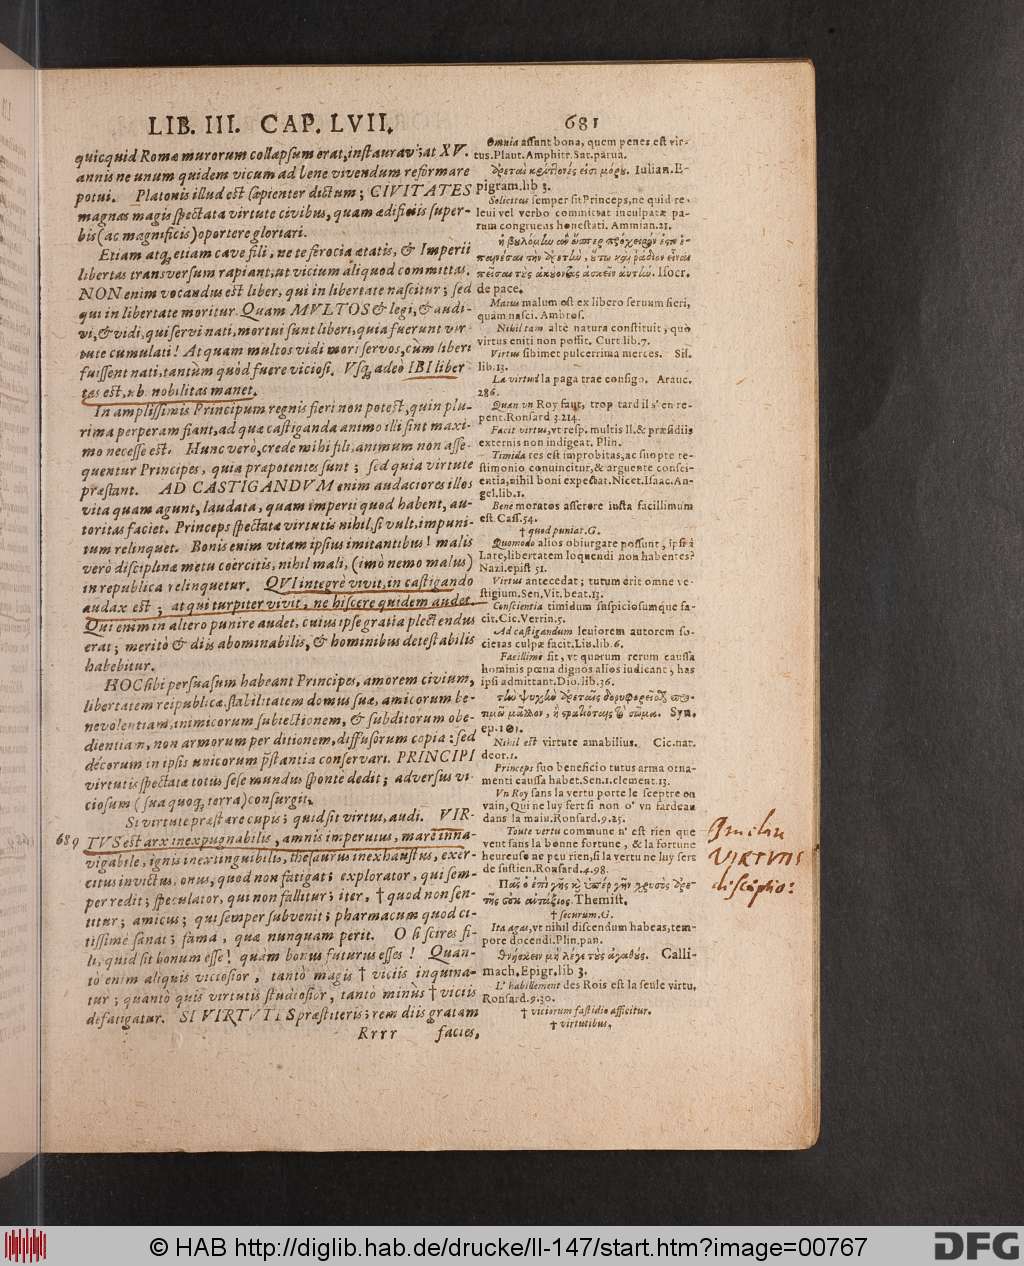 LIB. III. CAP. LVII. 681
quicquid Romæ murorum collapsum erat, instauravi: at XV.
annis ne unum quidem vicum ad bene vivendum reformare
potui. Platonis illud est sapienter dictum; CIVITATES
magnas magis spectata virtute civibus, quam ædificiis super-
bis (ac magnificis) oportere gloriari.
Etiam atq; etiam cave fili, ne te ferocia ætatis, & Imperii
libertas transversum rapiant; ut vicium aliquod committas.
NON enim vocandus est liber, qui in libertate nascitur; sed
qui in libertate moritur. Quam MVLTOS & legi, & audi-
vi, & vidi, qui servi nati, mortui sunt liberi, quia fuerunt vir-
tute cumulati! At quam multos vidi mori servos, cùm liberi
fuissent nati, tantùm quòd fuere viciosi. Vsq; adeò IBI liber-
tas est, ubi nobilitas manet.
In amplissimis Principum regnis fieri non potest, quin plu-
rima perperam fiant, ad quæ castiganda animo illi sint maxi-
mo necesse est. Hunc verò, crede mihi fili, animum non asse-
quentur Principes, quia præpotentes sunt; sed quia virtute
præstant. AD CASTIGANDVM enim audaciores illos
vita quam agunt, laudata, quam imperii quod habent, au-
toritas faciet. Princeps spectatæ virtutis nihil, si vult, impuni-
tum relinquet. Bonis enim vitam ipsius imitantibus! malis
verò disciplinæ metu coërcitis, nihil mali, (imò nemo malus)
in republica relinquetur. QVI integrè vivit, in castigando
audax est; at qui turpiter vivit, ne hiscere quidem audet.
Qui enim in altero punire audet, cuius ipse gratia plectendus
erat; meritò & diis abominabilis, & hominibus detestabilis
habebitur.
HOC sibi persuasum habeant Principes, amorem civium,
libertatem reipublicæ, stabilitatem domus suæ, amicorum be-
nevolentiam, inimicorum subiectionem, & subditorum obe-
dientiam, non armorum per ditionem, diffusorum copia: sed
decorum in ipsis unicorum præstantia conservari. PRINCIPI
virtutis spectatæ totus sese mundus sponte dedit; adversus vi-
ciosum (sua quoq; terra) consurgit.
Si virtute præstare cupis; quid sit virtus, audi. VIR-
689 TVS est arx inexpugnabilis, amnis imperutus, mare inna-
vigabile, ignis inextinguibilis, thesaurus inexhaustus, exer-
citus invictus, onus, quod non fatigat; explorator, qui sem-
per redit; speculator, qui non fallitur; iter, † quod non sen-
titur; amicus; qui semper subvenit; pharmacum quod ci-
tissime sanat; fama, quæ nunquam perit. O si scires fi-
li, quid sit bonum esse! quàm bonus futurus esses! Quan-
tò enim aliquis viciosior, tantò magis † viciis inquina-
tur; quantò quis virtutis studiosior, tantò minùs † viciis
defatigatur. SI VIRTVTE præstiteris; rem diis gratam
Rrrr facies,
Omnia assunt bona, quem penes est vir-
tus. Plaut. Amphitr. Sat. parua.
Iulian. E-
pigram. lib 3.
Solicitus semper sit Princeps, ne quid re-
leui vel verbo committat inculpatæ pa-
rum congruens honestati. Ammian. 21.
Isocr.
de pace.
Maius malum est ex libero seruum fieri,
quàm nasci. Ambros.
Nihil tam altè natura constituit, quò
virtus eniti non possit. Curt. lib. 7.
Virtus sibimet pulcerrima merces. Sil.
lib. 13.
La virtud la paga trae consigo. Arauc.
286.
Quan vn Roy faut, trop tard il s' en re-
pent. Ronsard 3. 214.
Facit virtus, vt resp. multis II. & præsidiis
externis non indigeat. Plin.
Timida res est improbitas, ac suopte te-
stimonio conuincitur, & arguente consci-
entia, nihil boni expectat. Nicet. Isaac. An-
gel. lib. 1.
Bene moratos asserere iusta facillimum
est. Cass. 54.
† quod puniat. G.
Quomodo alios obiurgare possunt, ipsi à
Lare, libertatem loquendi non habentes?
Nazi. epist 51.
Virtus antecedat; tutum erit omne ve-
stigium. Sen. Vit. beat. 13.
Conscientia timidum suspiciosumque fa-
cit. Cic. Verrin. 5.
Ad castigandum leuiorem autorem so-
cietas culpæ facit. Liu. lib. 6.
Facillime fit, vt quorum rerum caussa
hominis pœna dignos alios iudicant, has
ipsi admittant. Dio. lib. 36.
Syn.
ep. 101.
Nihil est virtute amabilius. Cic. nat.
deor. 1.
Princeps suo beneficio tutus arma orna-
menti caussa habet. Sen. 1. clement. 13.
Vn Roy sans la vertu porte le sceptre en
vain, Qui ne luy sert si non d' vn fardeau
dans la main. Ronsard. 9. 25.
Toute vertu commune n' est rien que
vent sans la bonne fortune, & la fortune
heureuse ne peu rien, si la vertu ne luy sert
de sustien. Ronsard. 4. 98.
Πᾶς ὁ ἐπὶ γῆς ἢ ὑπὲρ γῆν χρυσὸς ἀρε-
τῆς οὐκ ἀντάξιος. Themist.
† securum. G.
Ita agas, vt nihil discendum habeas, tem-
pore docendi. Plin. pan.
θνήσκειν μὴ λέγε τοὺς ἀγαθούς. Calli-
mach. Epigr. lib 3.
L' habillement des Rois est la seule vertu.
Ronsard. 9. 30.
† viciorum fastidio afficitur.
† virtutibus.
VIRTUTIS
© HAB http://diglib.hab.de/drucke/li-147/start.htm?image=00767
DFG